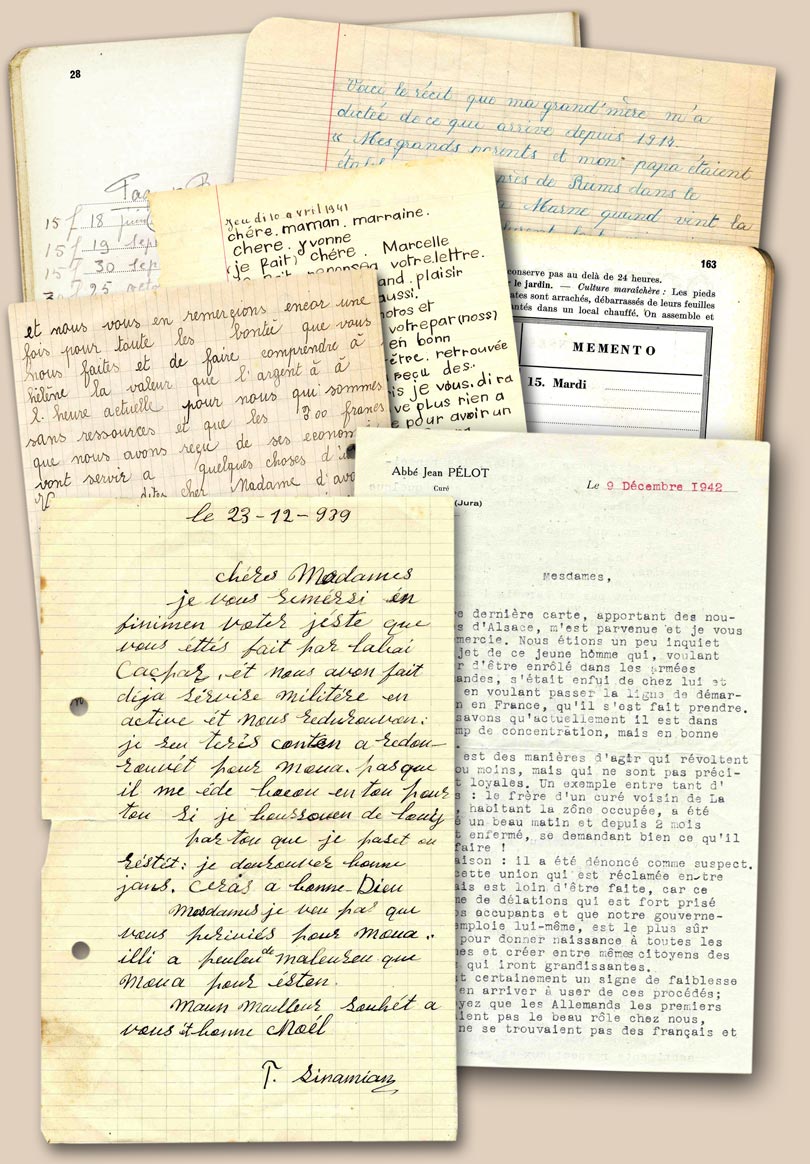 28
15 f 18
15 f 19 sep
15 f 30 sep
25 octo
Voici le récit que ma grand'mère m'a
dictée de ce que arrive depuis 1914
« Mes grands parents et mon papa étaient
près de Reims dans le
Marne quand vint la
jeudi 10 avril 1941
chére. maman. marraine.
chere. yvonne
(je fait) chére. Marcelle
reponse a votre. lettre.
and. plaisir
aussi.
photos et
votre par (noss)
en bonn
être. retrouvée
reçu des.
is je vous. di ra
ve plus rien a
e pour avoir un
conserve pas au delà de 24 heures.
163
r le jardin. — Culture maraîchère : Les pieds
ates sont arrachés, débarrassés de leurs feuilles
antés dans un local chauffé. On assemble et
MEMENTO
15. Mardi
et nous vous en remerçions encor une
fois pour toute les bontée que vous
nous faites et de faire comprendre à
hélène la valeur que l'argent à à
l. heure actuelle pour nous qui sommes
sans ressources et que les 300 francs
que nous avons reçu de ses economi
vont servir a quelques choses d'u
dites cher Madame d'avo
Abbé Jean PÉLOT
Curé
(Jura)
Le 9 Décembre 1942
Mesdames,
e dernière carte, apportant des nou-
s d'Alsace, m'est parvenue et je vous
mercie. Nous étions un peu inquiet
jet de ce jeune hômme qui, voulant
r d'être enrôlé dans les armées
andes, s'était enfui de chez lui et
en voulant passer la ligne de démar-
n en France, qu'il s'est fait prendre.
savons qu'actuellement il est dans
mp de concentration, mais en bonne
.
est des manières d'agir qui révoltent
ou moins, mais qui ne sont pas préci-
t loyales. Un exemple entre tant d'
s : le frère d'un curé voisin de La
, habitant la zône occupée, a été
é un beau matin et depuis 2 mois
t enfermé, se demandant bien ce qu'il
faire !
aison : il a été dénoncé comme suspect.
cette union qui est réclamée entre
ais est loin d'être faite, car ce
me de délations qui est fort prisé
os occupants et que notre gouverne-
emploie lui-même, est le plus sûr
pour donner naissance à toutes les
es et créer entre mêmes citoyens des
qui iront grandissantes.
t certainement un signe de faiblesse
en arriver à user de ces procédés;
yez que les Allemands les premiers
ient pas le beau rôle chez nous,
ne se trouvaient pas des français et
le 23-12-939
chéres Madames
je vous remérsi én
finimen voter jéste que
vous ettés fait par labai
Caçpar. ét nous avon fait
déja sérvise militére en
active ét nous redurouvon:
je seu terés conten a redou-
rouvét pour moua. pas que
il me éde bocou en tou pour
tou si je boussouen de louiy
par tou que je paset ou
réstét: je dourouver bonne
jans. cerás a bonne-Dieu
Mosdames je vou pas que
vous periviés pour moua..
illi a peulou de maleureu que
moua pour éston.
Maun mailleur souhét a
vous ét bonne Moél
T. Sinamian